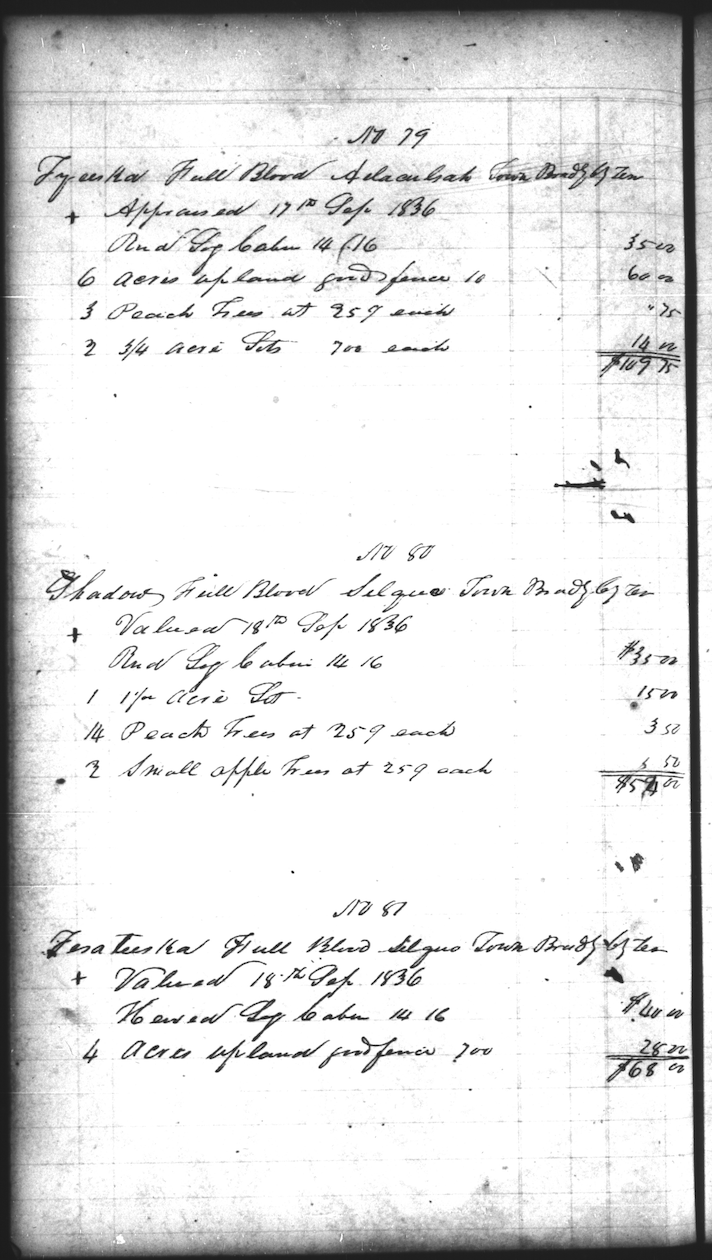 No 79
Full Blood Town Brady Cy Ten
+ Appraised 17th Sep 1836
Rnd Log Cabin 14 / 16 35 00
6 Acres upland good fence 10 60 00
3 Peach Trees at 25 each " 75
2 3/4 acre Lots 700 each 14 00
$109 75
No 80
Shadow Full Blood Town Brady Cy Ten
+ Valued 18th Sep 1836
Rnd Log Cabin 14 16 $35 00
1 acre Lot 15 00
14 Peach Trees at 25 each 3 50
2 Small apple Trees at 25 each 50
$54 00
No 81
Full Blood Town Brady Cy Ten
+ Valued 18th Sep 1836
Hewed Log Cabin 14 16 $40 00
4 Acres upland good fence 700 28 00
$68 00